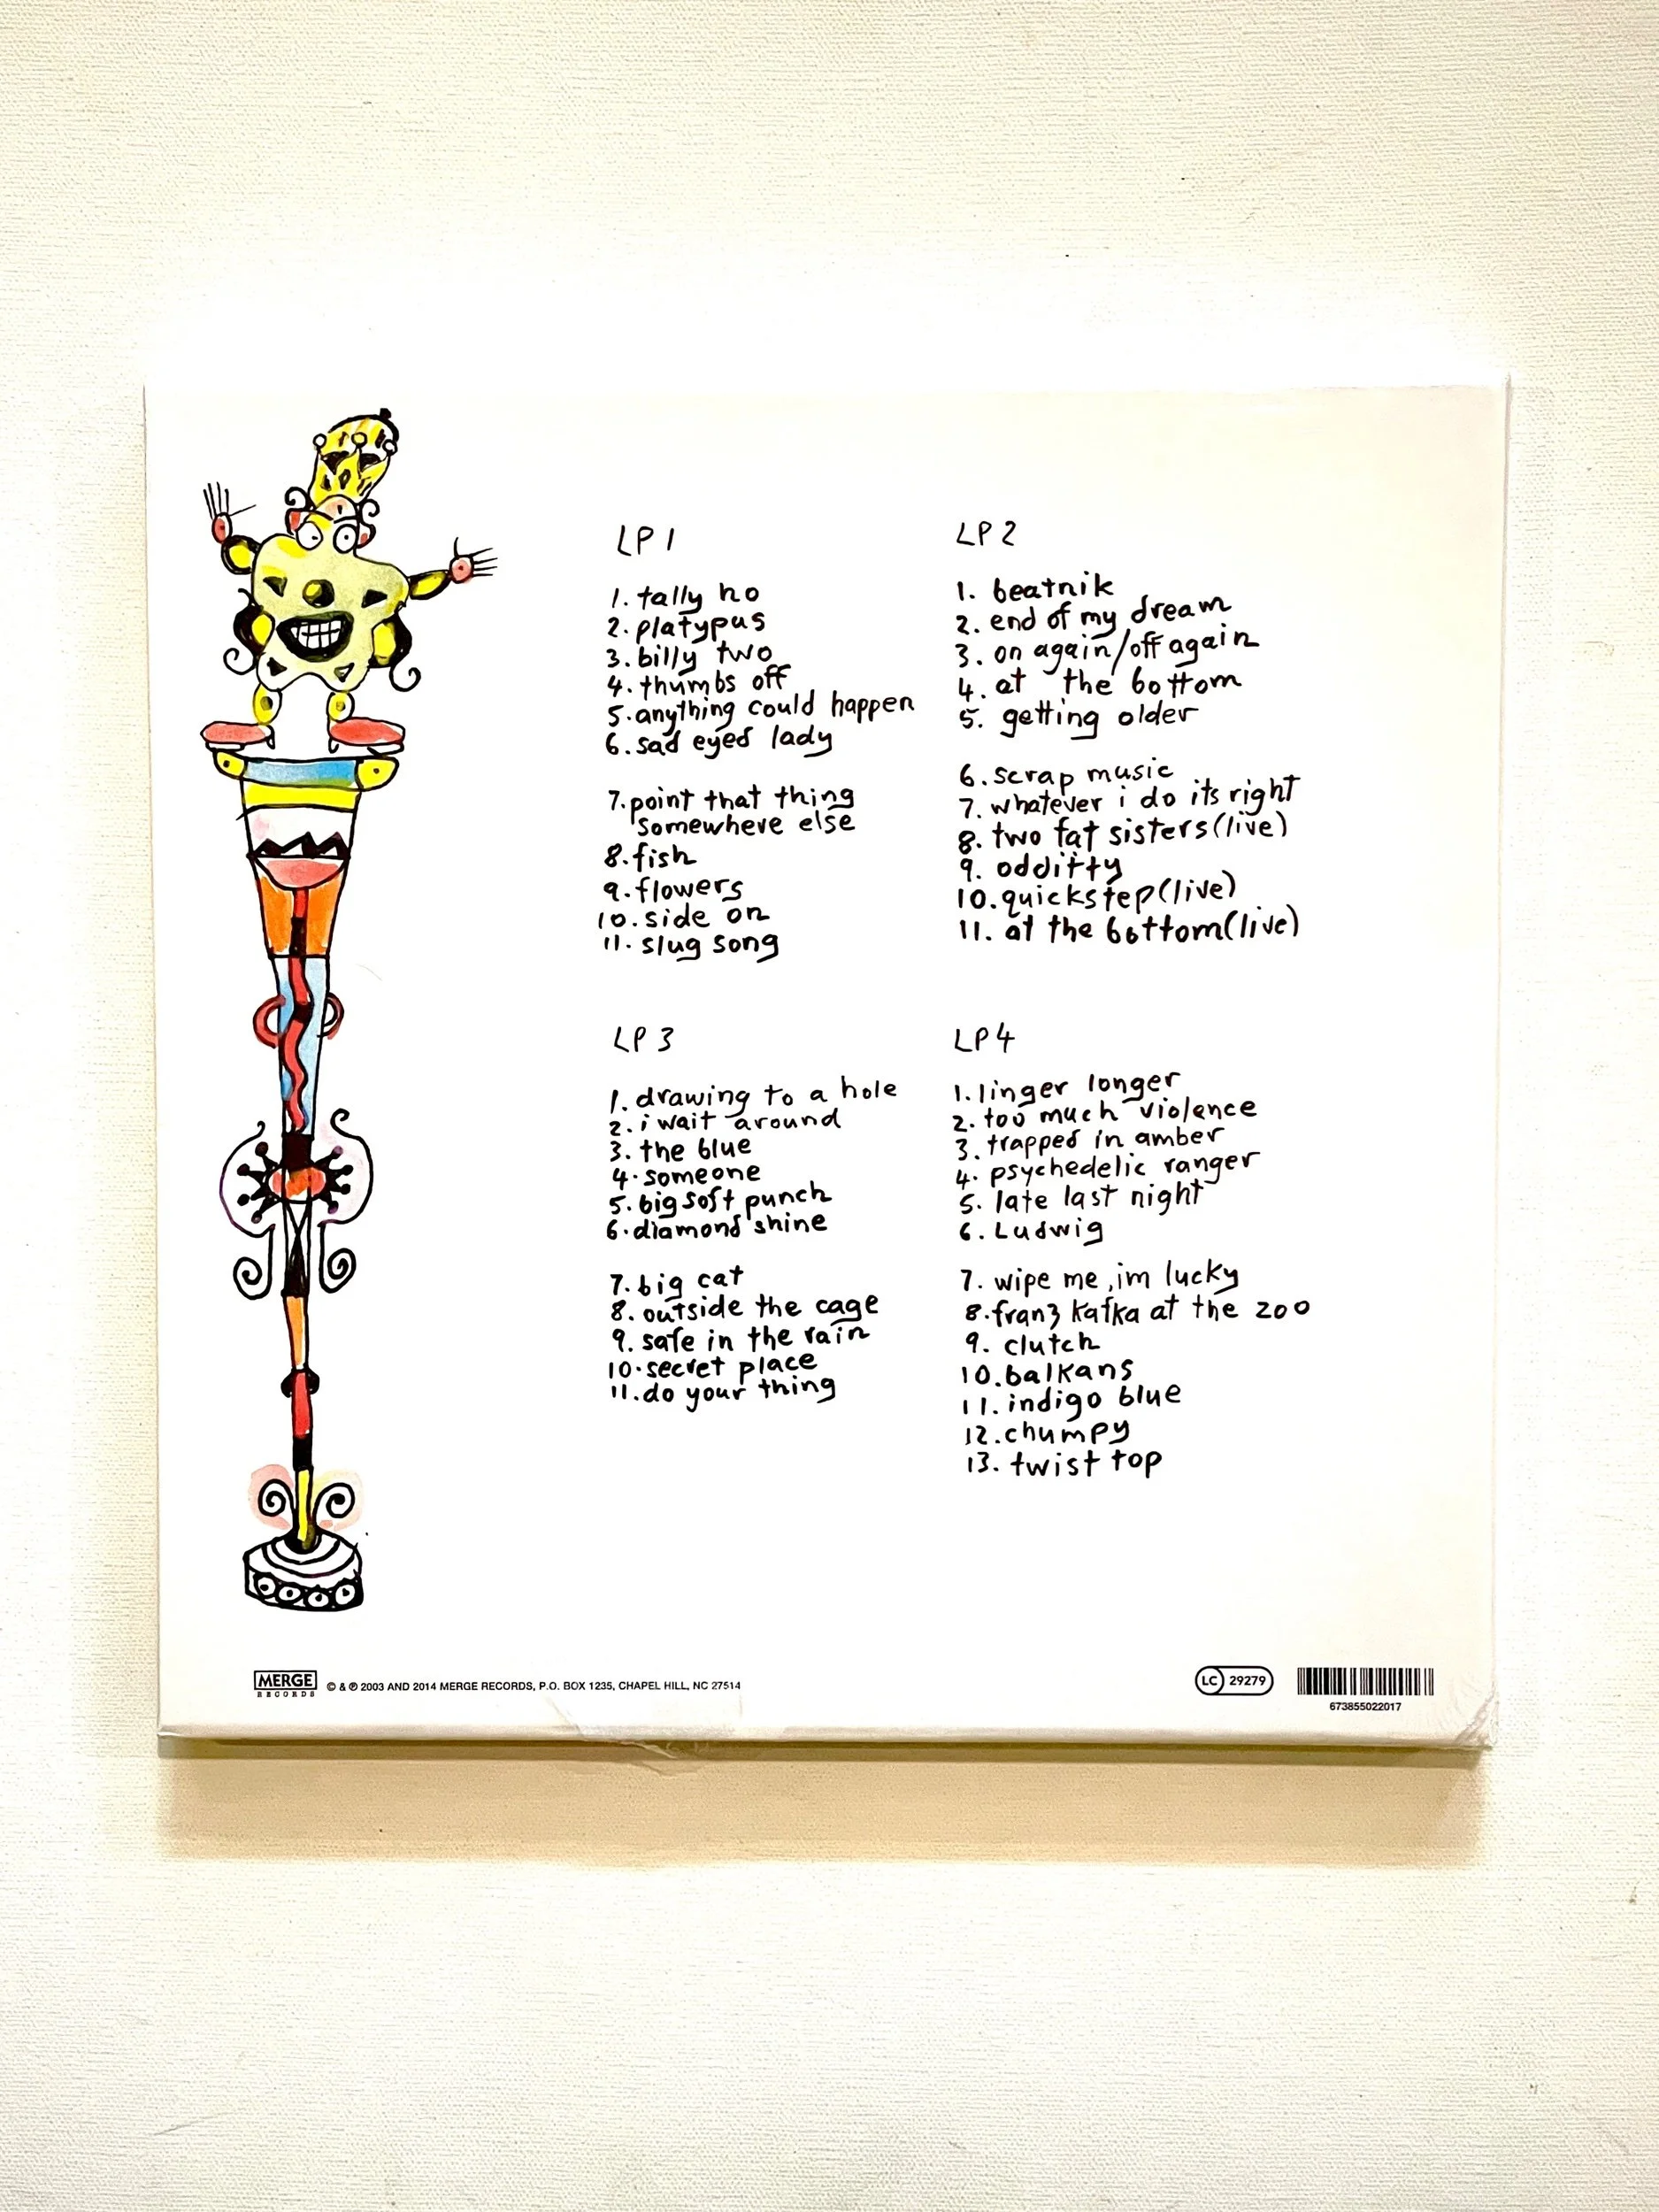 LP 1
1. tally ho
2. platypus
3. billy two
4. thumbs off
5. anything could happen
6. sad eyed lady
7. point that thing
somewhere else
8. fish
9. flowers
10. side on
11. slug song
LP 2
1. beatnik
2. end of my dream
3. on again/off again
4. at the bottom
5. getting older
6. scrap music
7. whatever i do its right
8. two fat sisters (live)
9. odditty
10. quickstep (live)
11. at the bottom (live)
LP 3
1. drawing to a hole
2. i wait around
3. the blue
4. someone
5. big soft punch
6. diamond shine
7. big cat
8. outside the cage
9. safe in the rain
10. secret place
11. do your thing
LP 4
1. linger longer
2. too much violence
3. trapped in amber
4. psychedelic ranger
5. late last night
6. Ludwig
7. wipe me, im lucky
8. franz kafka at the zoo
9. clutch
10. balkans
11. indigo blue
12. chumpy
13. twist top
MERGE
RECORDS
© & ℗ 2003 AND 2014 MERGE RECORDS, P.O. BOX 1235, CHAPEL HILL, NC 27514
LC 29279
673855022017